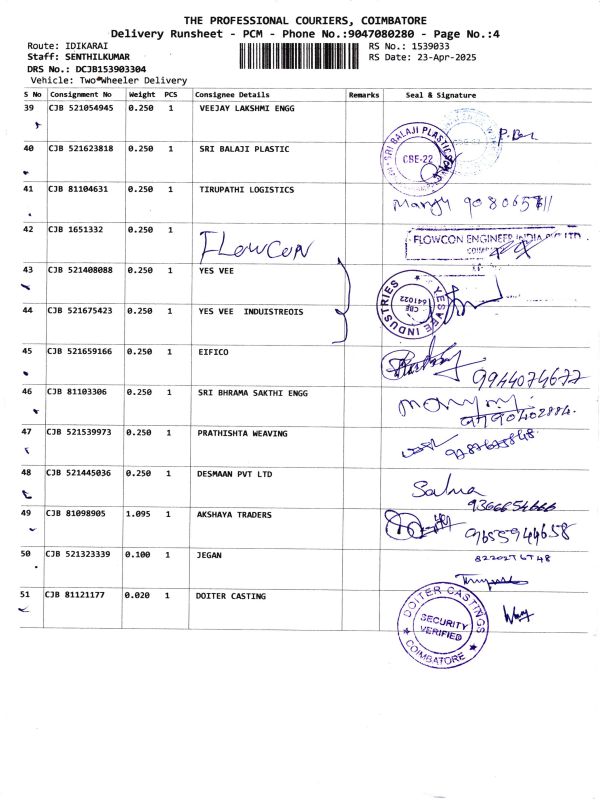 THE PROFESSIONAL COURIERS, COIMBATORE
Delivery Runsheet - PCM - Phone No.:9047080280 - Page No.:4
Route: IDIKARAI RS No.: 1539033
Staff: SENTHILKUMAR RS Date: 23-Apr-2025
DRS No.: DCJB153903304
Vehicle: Two Wheeler Delivery
S No Consignment No Weight PCS Consignee Details Remarks Seal & Signature
39 CJB 521054945 0.250 1 VEEJAY LAKSHMI ENGG
40 CJB 521623818 0.250 1 SRI BALAJI PLASTIC
SRI BALAJI PLASTIC
CBE-22
41 CJB 81104631 0.250 1 TIRUPATHI LOGISTICS
42 CJB 1651332 0.250 1
FLOWCON
FLOWCON ENGINEER INDIA PVT LTD
43 CJB 521408088 0.250 1 YES VEE
YESVEE INDUSTRIES
CBE
641022
44 CJB 521675423 0.250 1 YES VEE INDUISTREOIS
45 CJB 521659166 0.250 1 EIFICO
9944074677
46 CJB 81103306 0.250 1 SRI BHRAMA SAKTHI ENGG
47 CJB 521539973 0.250 1 PRATHISHTA WEAVING
48 CJB 521445036 0.250 1 DESMAAN PVT LTD
Salma
9366654666
49 CJB 81098905 1.095 1 AKSHAYA TRADERS
9655944658
50 CJB 521323339 0.100 1 JEGAN
8220276748
51 CJB 81121177 0.020 1 DOITER CASTING
DOITER CASTINGS
SECURITY
VERIFIED
COIMBATORE